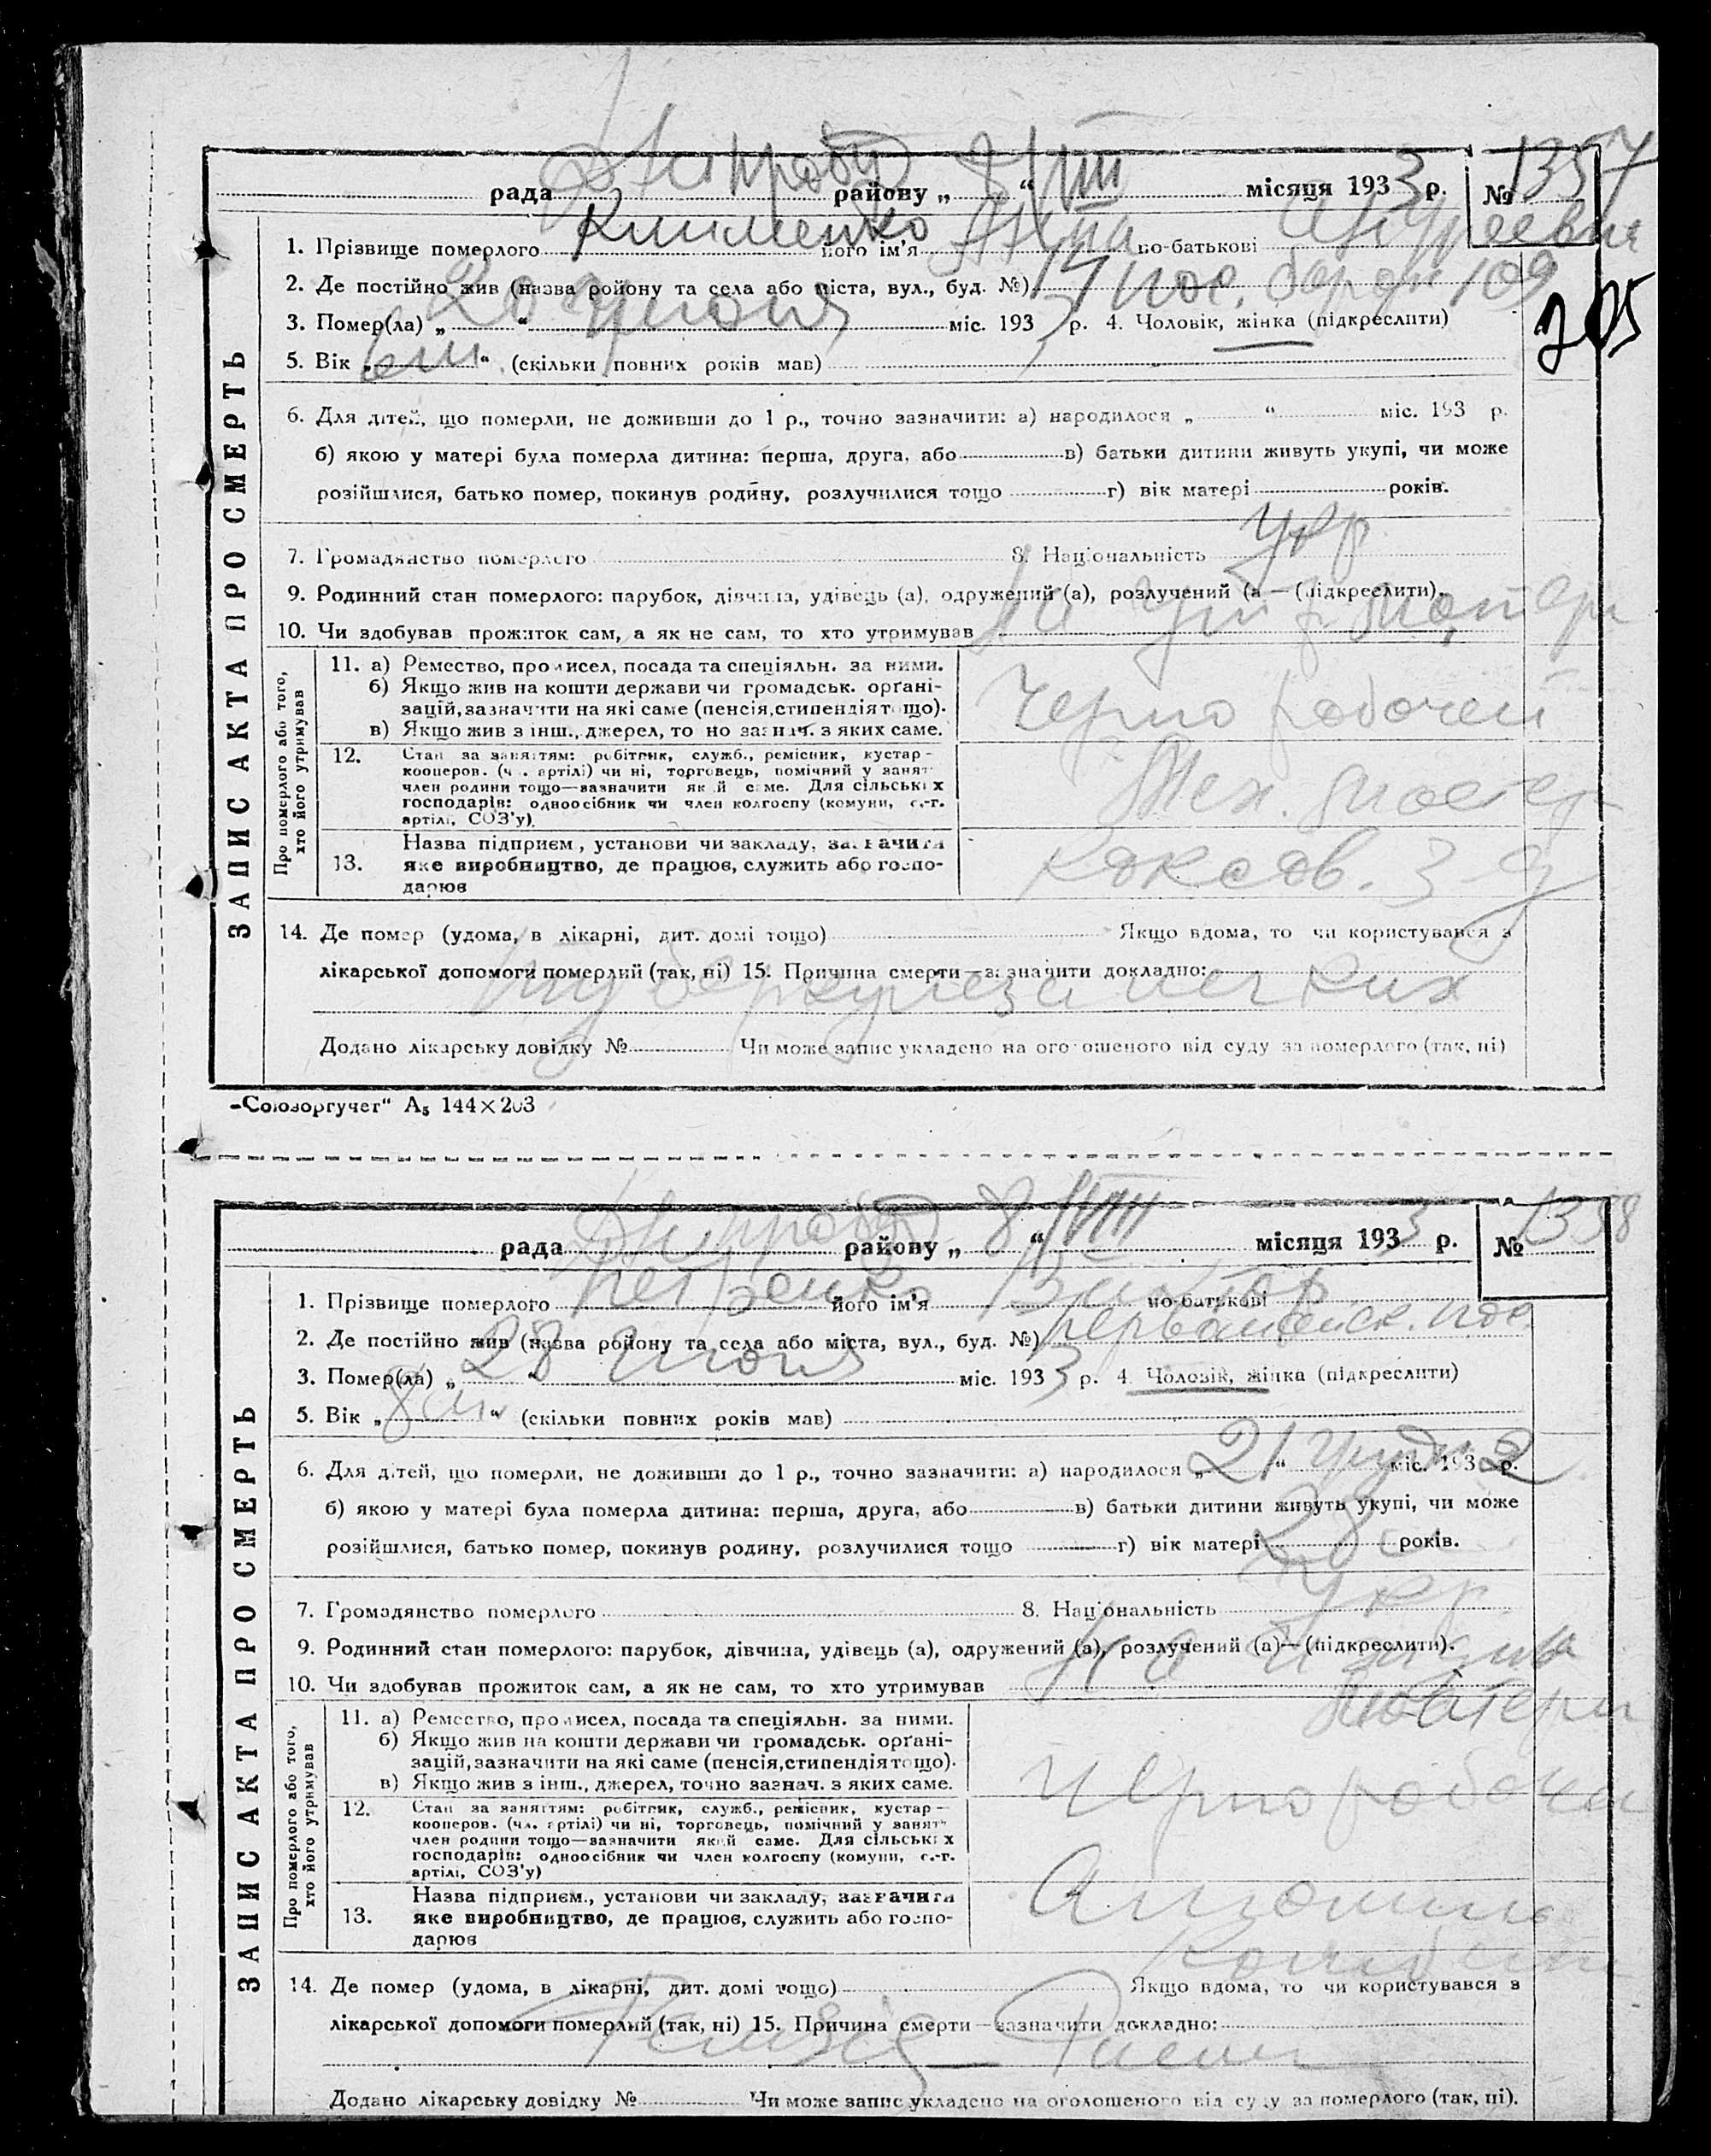 рада района „ 8/VIII “ місяця 1933 р. № 1357
1. Прізвище померлого Клименко його ім'я Анна по-батькові
2. Де постійно жив (назва ройону та села або міста, вул., буд. №) 14 пос. барак 109
205
3. Помер(ла) „ 20 “ июня міс. 1933 р. 4. Чоловік, жінка (підкреслити)
5. Вік „ “ (скільки повних років мав)
6. Для дітей, що померли, не доживши до 1 р., точно зазначити: а) народилося „ “ міс. 193 р.
б) якою у матері була померла дитина: перша, друга, або в) батьки дитини живуть укупі, чи може
розійшлися, батько помер, покинув родину, розлучилися тощо г) вік матері років.
7. Громадянство померлого 8. Національність Укр
9. Родинний стан померлого: парубок, дівчина, удівець (а), одружений (а), розлучений (а — (підкреслити).
10. Чи здобував прожиток сам, а як не сам, то хто утримував На матери
ЗАПИС АКТА ПРО СМЕРТЬ
Про померлого або того, хто його утримував
11. а) Ремество, промисел, посада та спеціяльн. за ними.
б) Якщо жив на кошти держави чи громадськ. орґані-
зацій, зазначити на які саме (пенсія, стипендія тощо).
в) Якщо жив з інш., джерел, точно зазнач. з яких саме.
Чернорабочей
12. Стан за заняттям: робітник, служб., ремісник, кустар —
кооперов. (чл. артілі) чи ні, торговець, помічний у занят.
член родини тощо—зазначити який саме. Для сільських
господарів: одноосібник чи член колгоспу (комуни, с.-г.
артілі, СОЗ'у).
Мех.
13. Назва підприєм., установи чи закладу, зазначити
яке виробництво, де працює, служить або госпо-
дарює
Коксов. з-д
14. Де помер (удома, в лікарні, дит. домі тощо) Якщо вдома, то чи користувався з
лікарської допомоги померлий (так, ні) 15. Причина смерти—зазначити докладно:
туберкулеза легких
Додано лікарську довідку № Чи може запис укладено на оголошеного від суду за померлого (так, ні)
„Союзоргучет“ А₅ 144×203
рада району „ 8/VIII “ місяця 1933 р. № 1358
1. Прізвище померлого Петренко його ім'я Виктор по-батькові
2. Де постійно жив (назва ройону та села або міста, вул., буд. №) Первомайск. пос.
3. Помер(ла) „ 28 “ июня міс. 1933 р. 4. Чоловік, жінка (підкреслити)
5. Вік „ 8 м. “ (скільки повних років мав)
6. Для дітей, що померли, не доживши до 1 р., точно зазначити: а) народилося „ 21 “ міс. 1932 р.
б) якою у матері була померла дитина: перша, друга, або в) батьки дитини живуть укупі, чи може
розійшлися, батько помер, покинув родину, розлучилися тощо г) вік матері 28 років.
7. Громадянство померлого 8. Національність Укр
9. Родинний стан померлого: парубок, дівчина, удівець (а), одружений (а), розлучений (а)—(підкреслити).
10. Чи здобував прожиток сам, а як не сам, то хто утримував На
матери
ЗАПИС АКТА ПРО СМЕРТЬ
Про померлого або того, хто його утримував
11. а) Ремество, промисел, посада та спеціяльн. за ними.
б) Якщо жив на кошти держави чи громадськ. орґані-
зацій, зазначити на які саме (пенсія, стипендія тощо).
в) Якщо жив з інш., джерел, точно зазнач. з яких саме.
Чернорабоча
12. Стан за заняттям: робітник, служб., ремісник, кустар —
кооперов. (чл. артілі) чи ні, торговець, помічний у занят.
член родини тощо—зазначити який саме. Для сільських
господарів: одноосібник чи член колгоспу (комуни, с.-г.
артілі, СОЗ'у)
13. Назва підприєм., установи чи закладу, зазначити
яке виробництво, де працює, служить або госпо-
дарює
14. Де помер (удома, в лікарні, дит. домі тощо) Якщо вдома, то чи користувався з
лікарської допомоги померлий (так, ні) 15. Причина смерти—зазначити докладно:
Додано лікарську довідку № Чи може запис укладено на оголошеного від суду за померлого (так, ні).